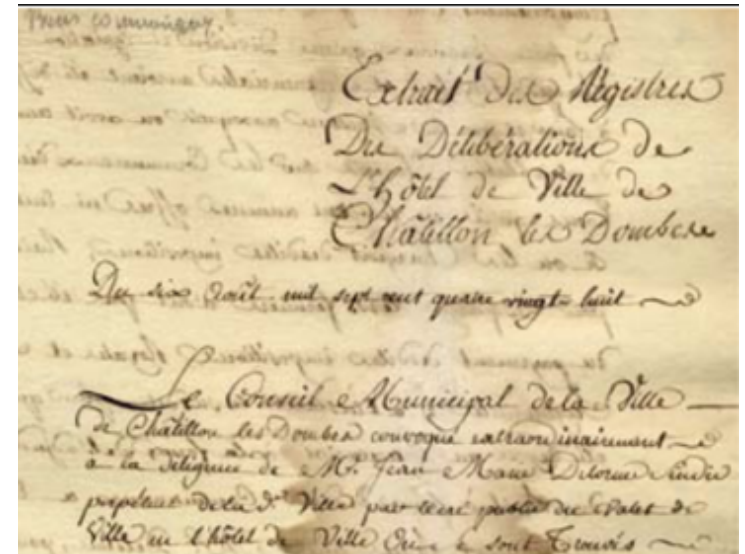 Extrait des Régistres
Des Délibérations de
L'hôtel de Ville de
Châtillon les Dombes
Du six Août mil sept cent quatre vingt huit
Le Conseil Municipal de la Ville
de Châtillon les Dombes convoqué extraordinairement
à la diligence de Mr. Jean Marie Delorme sindic
perpétuel de la de. Ville par billet publié du valet de
Ville en l'hôtel de Ville où se sont Trouvés